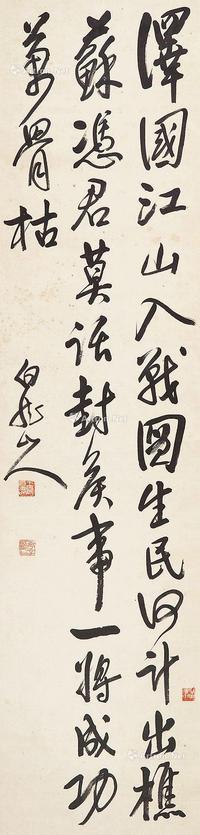 澤國江山入戰圖生民何計出樵
蘇憑君莫話封侯事一將成功
萬骨枯
白龍山人